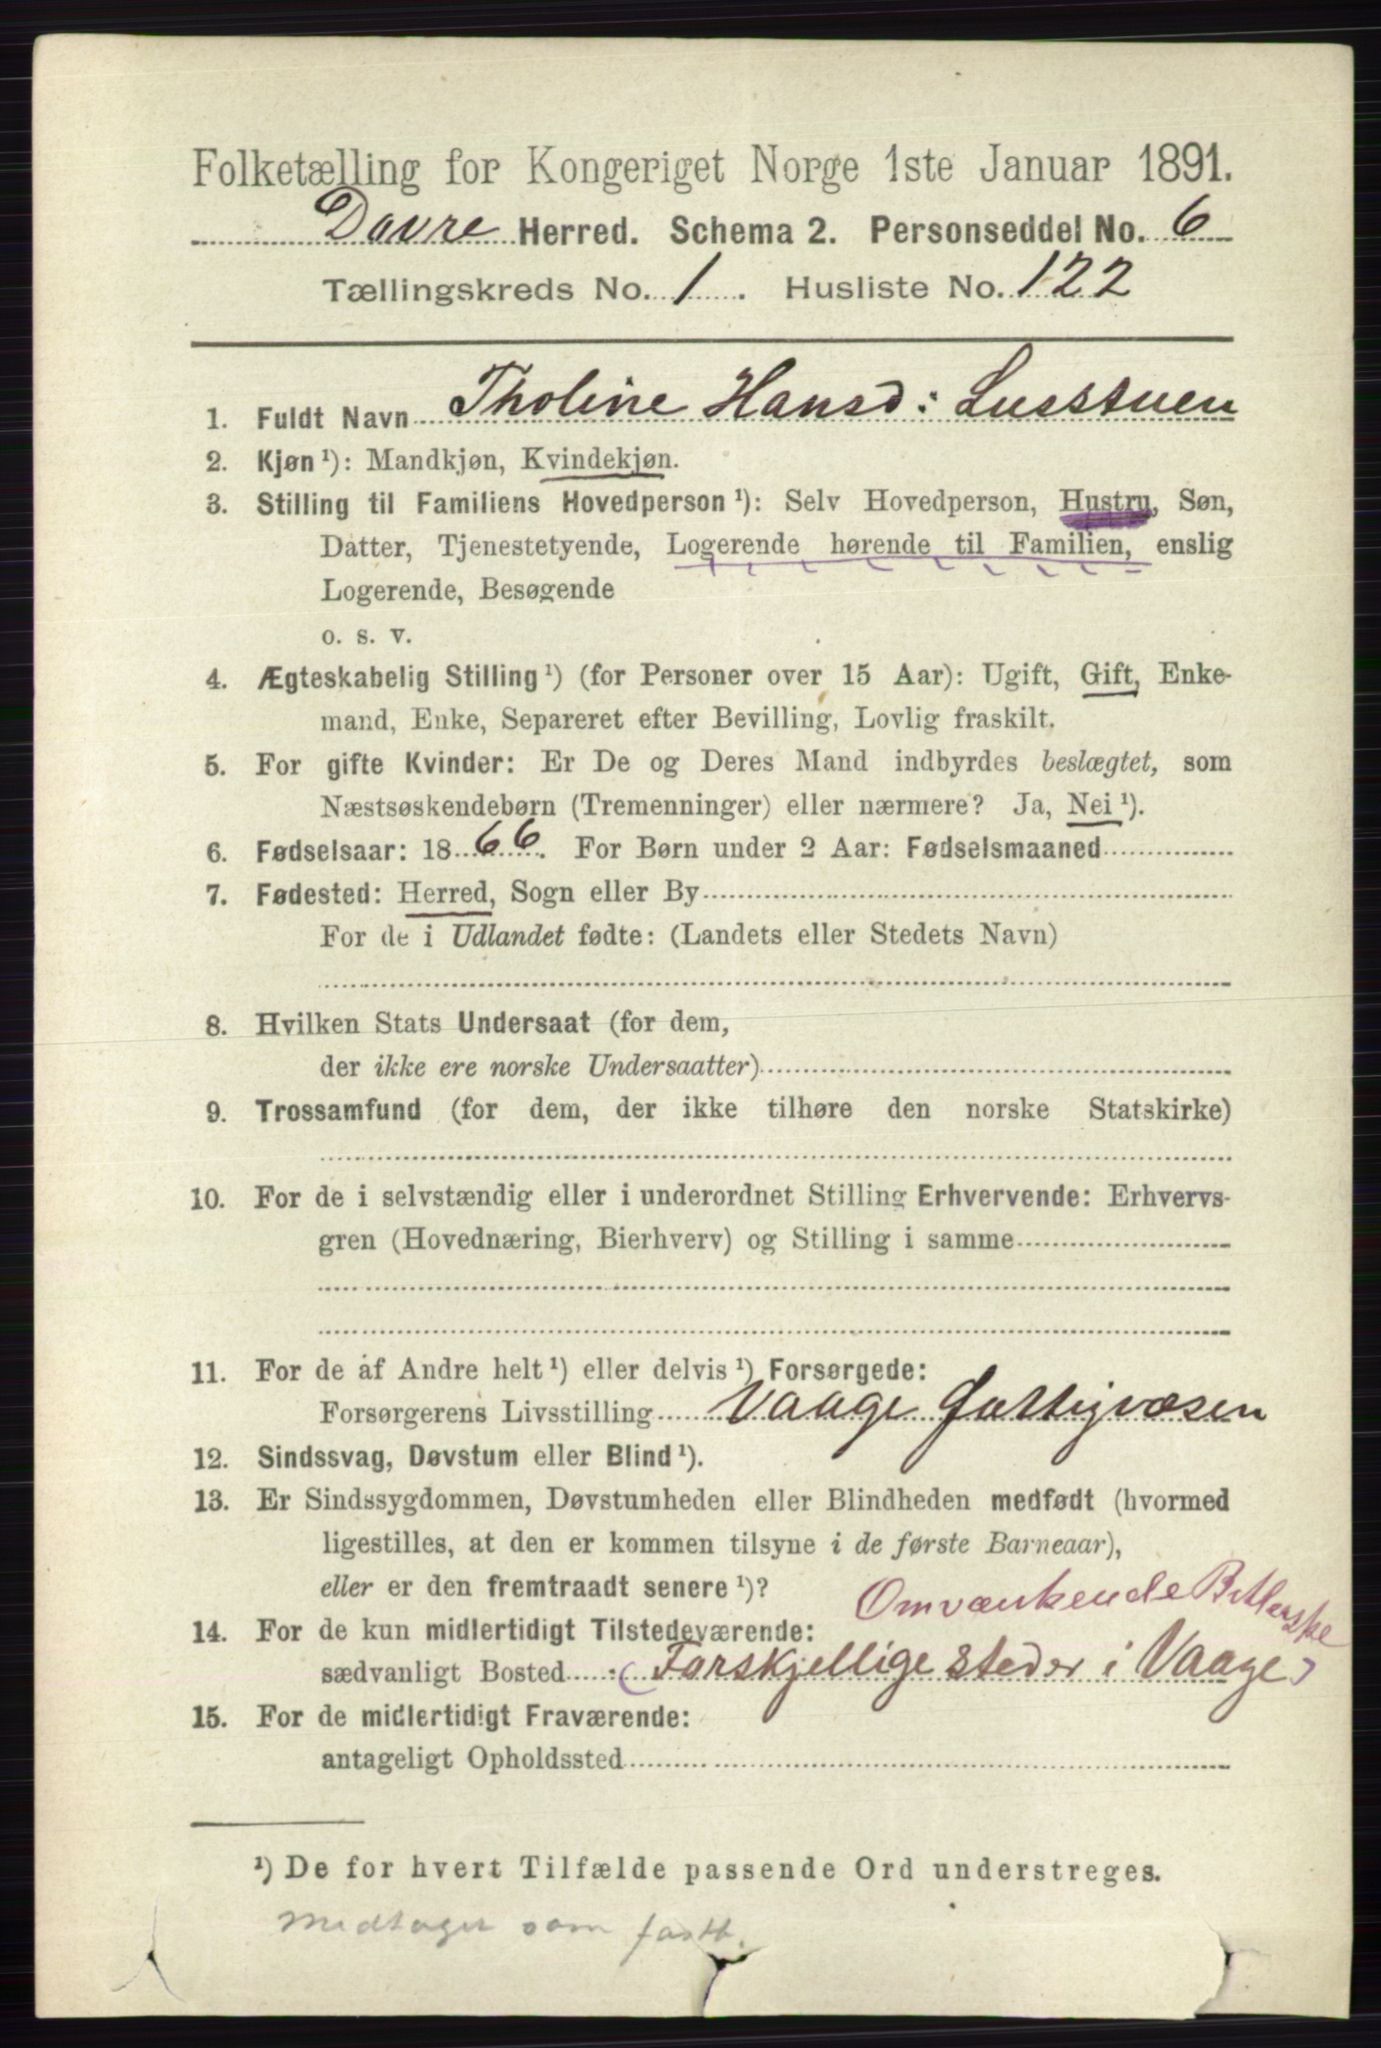 Folketælling for Kongeriget Norge 1ste Januar 1891.
Dovre Herred. Schema 2. Personseddel No. 6
Tællingskreds No. 1. Husliste No. 122
1. Fuldt Navn Tholine Hansd: Lusstuen
2. Kjøn ¹): Mandkjøn, Kvindekjøn.
3. Stilling til Familiens Hovedperson ¹): Selv Hovedperson, Hustru, Søn,
Datter, Tjenestetyende, Logerende hørende til Familien, enslig
Logerende, Besøgende
o. s. v.
4. Ægteskabelig Stilling ¹) (for Personer over 15 Aar): Ugift, Gift, Enke-
mand, Enke, Separeret efter Bevilling, Lovlig fraskilt.
5. For gifte Kvinder: Er De og Deres Mand indbyrdes beslægtet, som
Næstsøskendebørn (Tremenninger) eller nærmere? Ja, Nei ¹).
6. Fødselsaar: 1866. For Børn under 2 Aar: Fødselsmaaned
7. Fødested: Herred, Sogn eller By
For de i Udlandet fødte: (Landets eller Stedets Navn)
8. Hvilken Stats Undersaat (for dem,
der ikke ere norske Undersaatter)
9. Trossamfund (for dem, der ikke tilhøre den norske Statskirke)
10. For de i selvstændig eller i underordnet Stilling Erhvervende: Erhvervs-
gren (Hovednæring, Bierhverv) og Stilling i samme
11. For de af Andre helt ¹) eller delvis ¹) Forsørgede:
Forsørgerens Livsstilling Vaage Fattigvæsen
12. Sindssvag, Døvstum eller Blind ¹).
13. Er Sindssygdommen, Døvstumheden eller Blindheden medfødt (hvormed
ligestilles, at den er kommen tilsyne i de første Barneaar),
eller er den fremtraadt senere ¹)?
Omvankende Betlerske
14. For de kun midlertidigt Tilstedeværende:
sædvanligt Bosted (Forskjellige steder i Vaage)
15. For de midlertidigt Fraværende:
antageligt Opholdssted
¹) De for hvert Tilfælde passende Ord understreges.
Medtages som fastb.